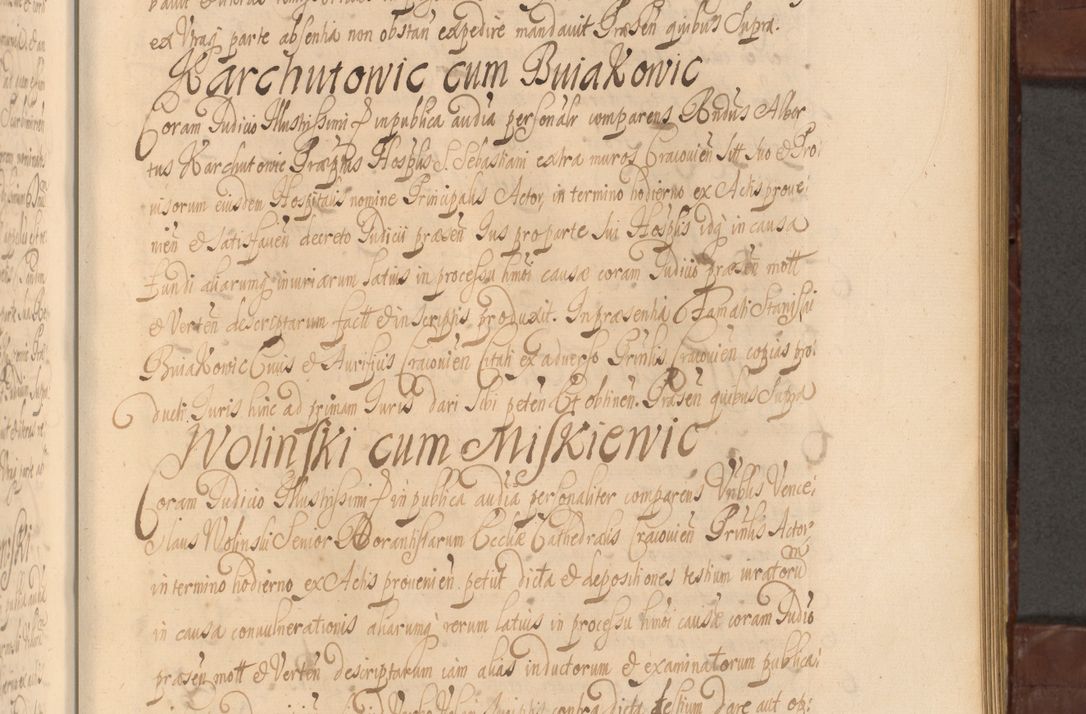 ex Vraq parte absentia non obstan expedire mandauit Præsen quibus Supra.
Karchutowic cum Buiakowic
Coram Judicio Illustrissimi & in publica audia personalr comparens Rndus Alber
tus Karchutowic Præptus Hosplis S. Sebastiani extra muros Cracouien sitt suo & Pro:
uisorum eiusdem Hospitalis nomine Principalis Actor, in termino hodierno ex Actis proue:
nien & satisfauen decreto Judicii præsen Jus pro parte sui Hosplis idq in causa
fundi aliarumq iniuriarum latius in processu hmoi causæ coram Judicio præsen mott
& Verten descriptarum factt & in scriptis produxit. In præsentia Famati Stanislai
Buiakowic Ciuis & Aurifius Cracouien Citati ex aduerso Prinlis Cracouien copias pro:
ducti Juris hinc ad primam Juris dari sibi peten Et obtinen. Præsen quibus Supra
Wolinski cum Miskiewic
Coram Judicio Illustrissimi & in publica audia personaliter comparens Vnblis Vence:
slaus Wolinski Senior Rorantistarum Eccliæ Cathedralis Cracouien Prinlis Actor
in termino hodierno ex Actis prouenien petiit dicta & depositiones testium iuratoru
in causa conuulnerationis aliarumq rerum latius in processu hmoi causæ coram Judio
præsen mott & Verten descriptarum iam alias inductorum & examinatorum publica:
contra dicta testium dare aut op: